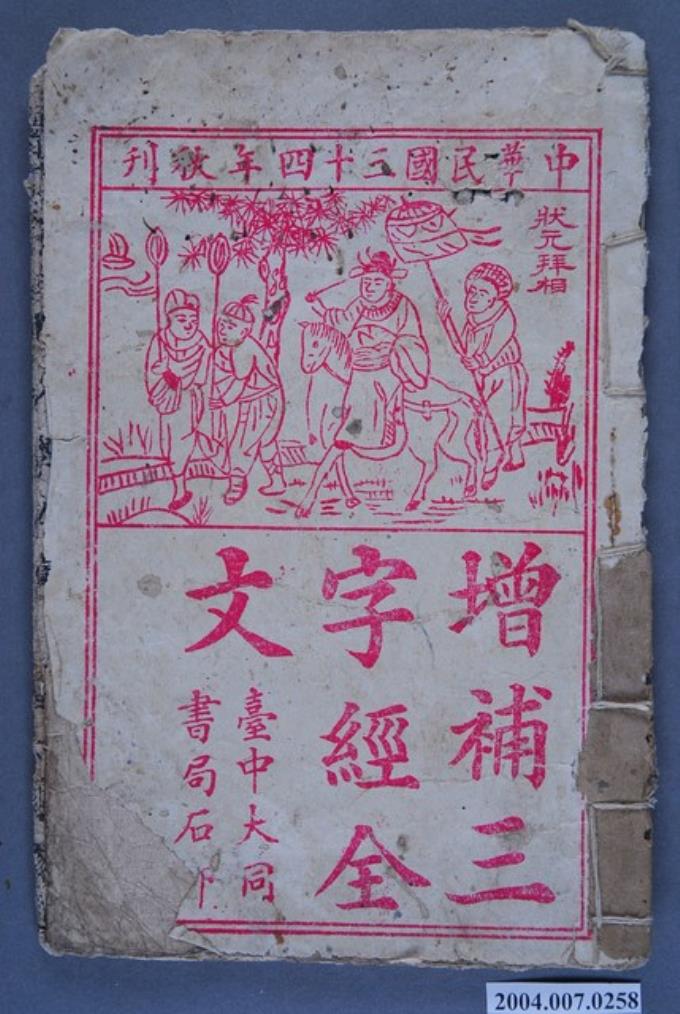 中華民國三十四年秋刊
狀元拜相
增補三
字經全
文
臺中大同
書局石
2004.007.0258